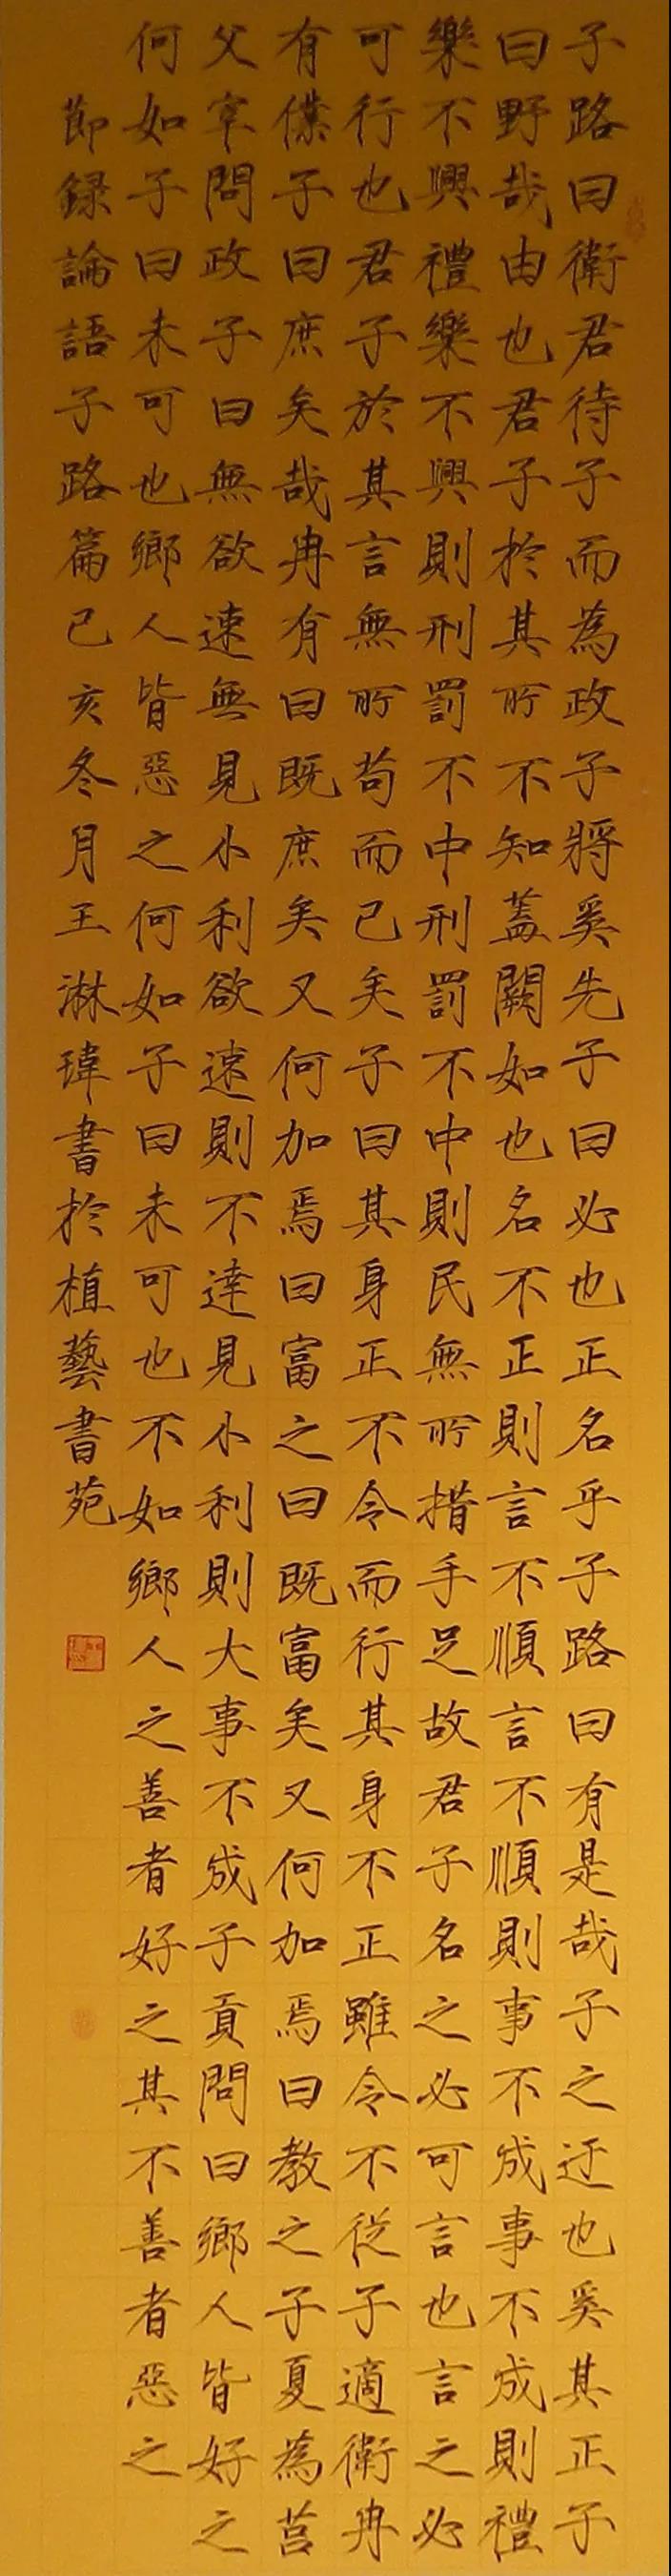 子路曰衛君待子而為政子將奚先子曰必也正名乎子路曰有是哉子之迂也奚其正子
曰野哉由也君子於其所不知蓋闕如也名不正則言不順言不順則事不成事不成則禮
樂不興禮樂不興則刑罰不中刑罰不中則民無所措手足故君子名之必可言也言之必
可行也君子於其言無所苟而已矣子曰其身正不令而行其身不正雖令不從子適衛冉
有僕子曰庶矣哉冉有曰既庶矣又何加焉曰富之曰既富矣又何加焉曰教之子夏為莒
父宰問政子曰無欲速無見小利欲速則不達見小利則大事不成子貢問曰鄉人皆好之
何如子曰未可也鄉人皆惡之何如子曰未可也不如鄉人之善者好之其不善者惡之
節録論語子路篇己亥冬月王淋瑋書於植藝書苑